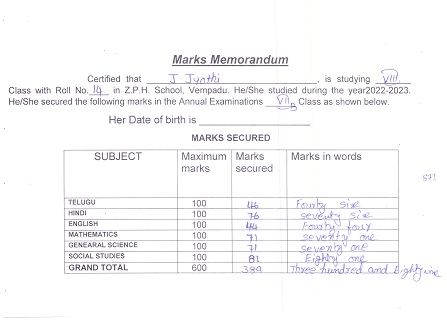 Marks Memorandum
Certified that J Jyothi, is studying VIII
Class with Roll No. 14 in Z.P.H. School, Vempadu. He/She studied during the year2022-2023.
He/She secured the following marks in the Annual Examinations VII B Class as shown below.
Her Date of birth is
MARKS SECURED
SUBJECT Maximum marks Marks secured Marks in words
TELUGU 100 46 Fourty six
HINDI 100 76 seventy six
ENGLISH 100 44 Fourty four
MATHEMATICS 100 71 seventy one
GENEARAL SCIENCE 100 71 seventy one
SOCIAL STUDIES 100 81 Eighty one
GRAND TOTAL 600 389 Three hundred and Eighty nine